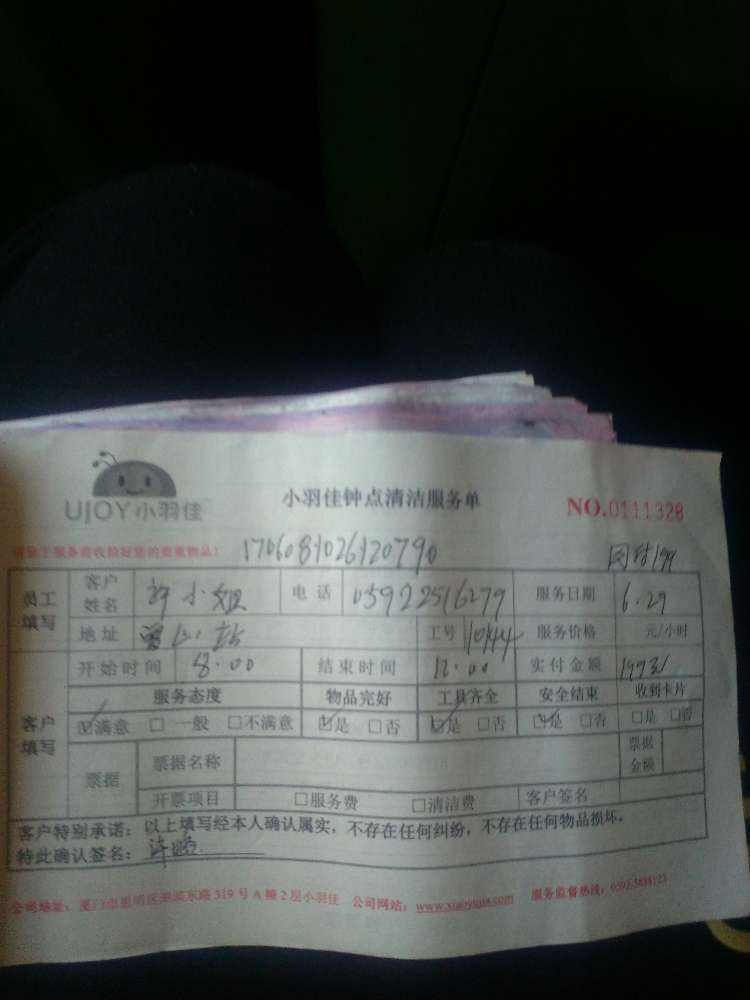 UJOY小羽佳
小羽佳钟点清洁服务单
NO.0111328
请您于服务前收拾好您的贵重物品！ 1706081026120790 网付199
员工填写 客户姓名 许小姐 电话 05922516279 服务日期 6.29
地址 工号 10144 服务价格 元/小时
开始时间 8:00 结束时间 12:00 实付金额
服务态度 物品完好 工具齐全 安全结束 收到卡片
客户填写 ☑满意 □一般 □不满意 ☑是 □否 ☑是 □否 ☑是 □否 □是 □否
票据 票据名称 票据金额
开票项目 □服务费 □清洁费 客户签名
客户特别承诺：以上填写经本人确认属实，不存在任何纠纷，不存在任何物品损坏。
特此确认签名：
公司地址：厦门市思明区湖滨东路319号A幢2层小羽佳 公司网站：www.xiaoyujia.com 服务监督热线：